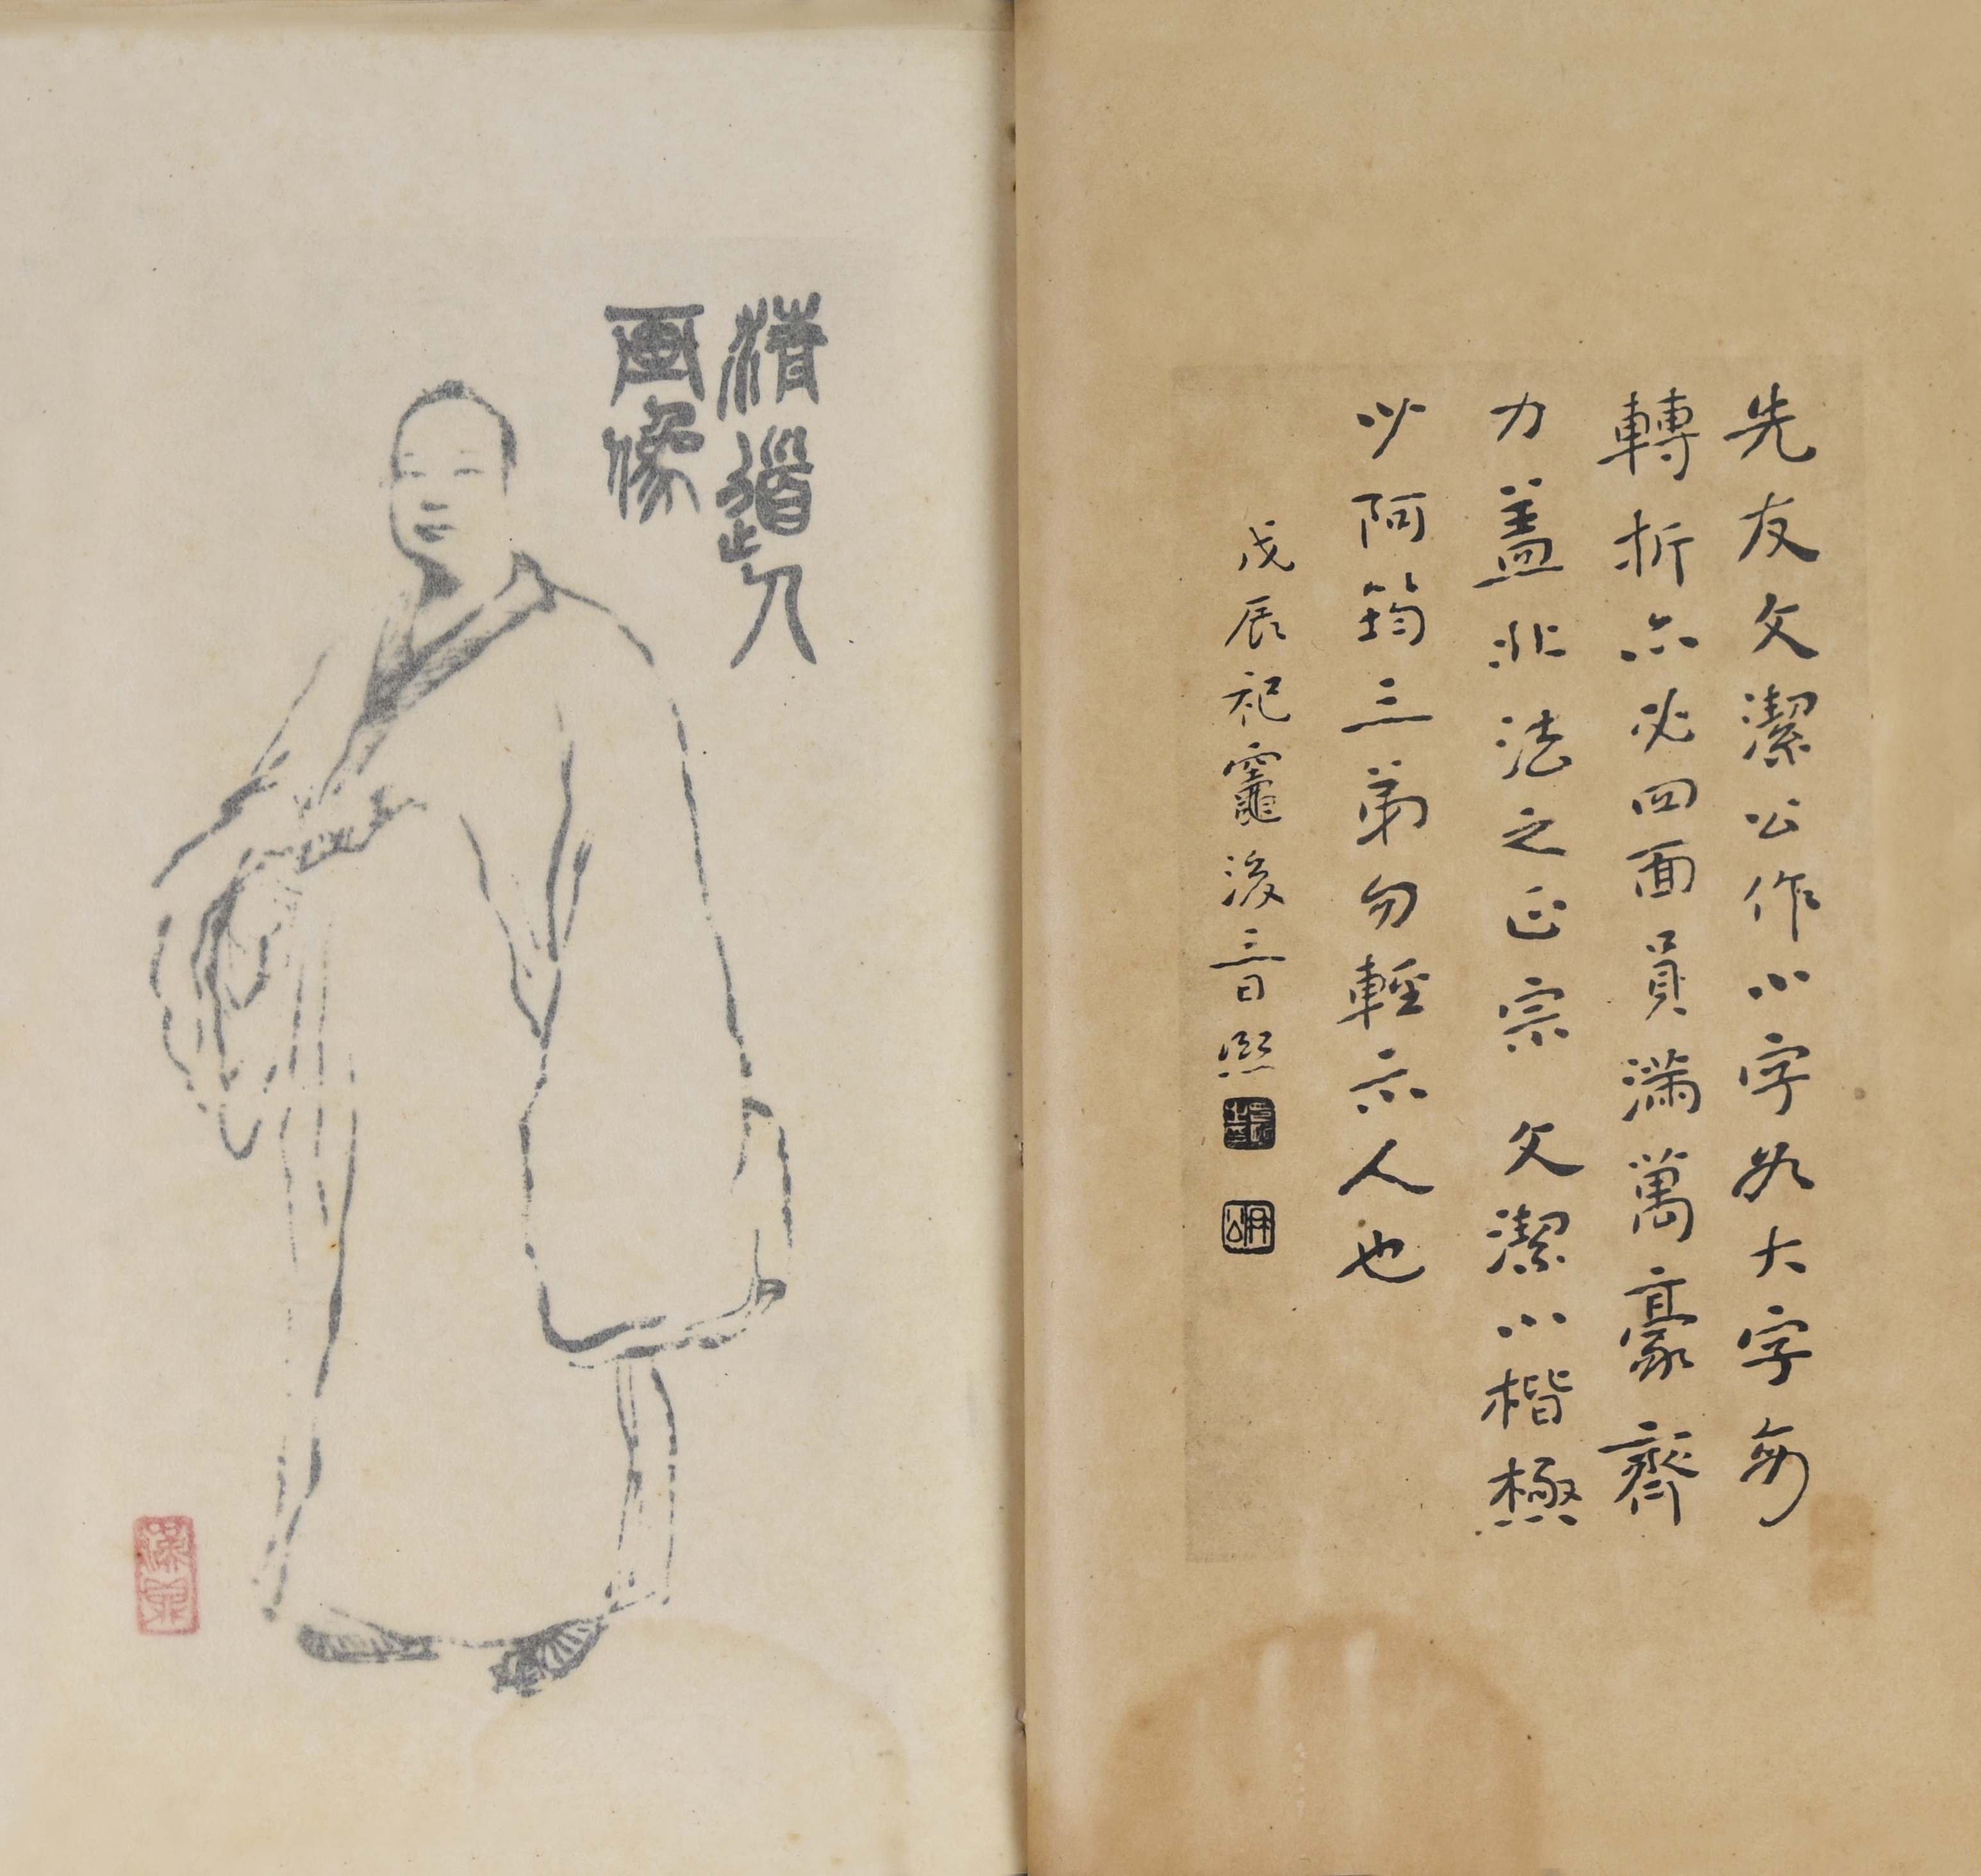 先友文潔公作小字如大字每
轉折亦必四面員滿萬豪齊
力蓋非法之正宗 文潔小楷極
少阿筠三弟勿輕示人也
戊辰祀竈後三日熙
清道人
画像